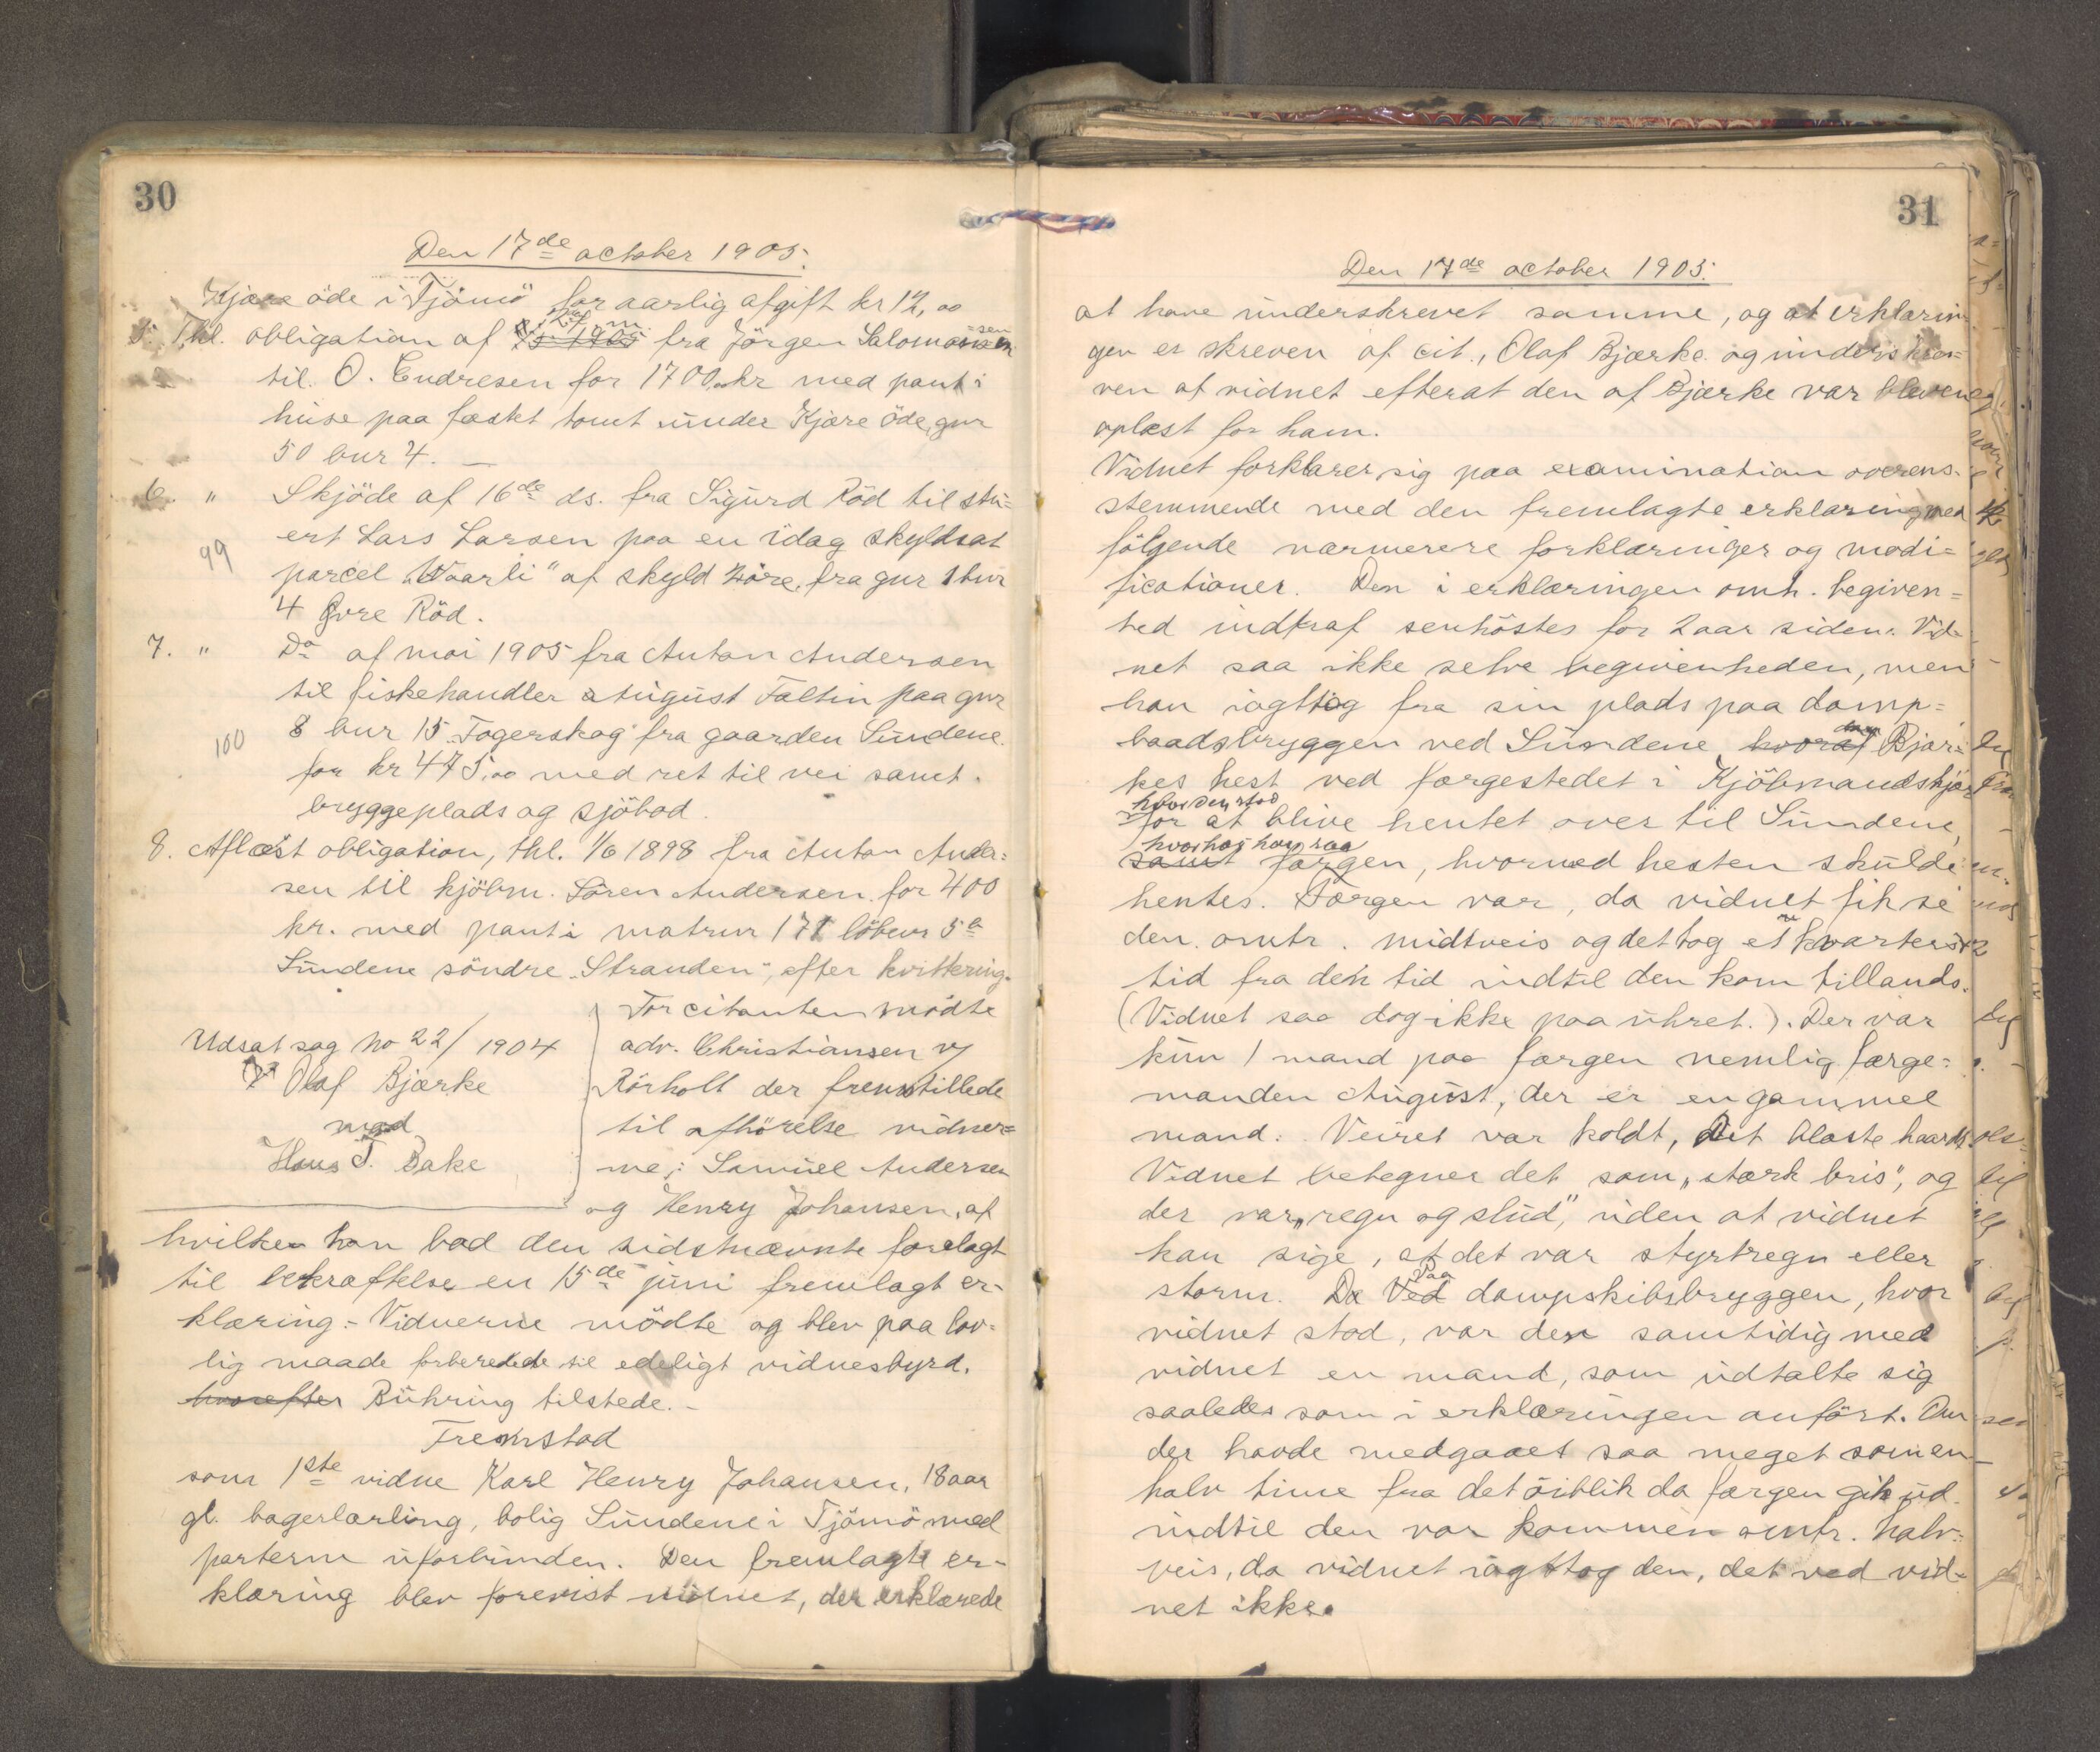 30
Den 17de october 1905.
Kjære öde i Tjömö for aarlig afgift kr 12,00
5. Thl. obligation af fra Jörgen Salomonsen
til O. Endresen for 1700 kr med pant i
huse paa fæstet tomt under Kjære öde, gnr
50 bnr 4. —
6. " Skjöde af 16de ds. fra Sigurd Röd til stu=
ert Lars Larsen paa en idag skyldsat
99
parcel "Vaarli" af skyld öre, fra gnr 1 bnr
4 Övre Röd.
7. " Do af mai 1905 fra Anton Andersen
til fiskehandler August Faltin paa gnr
100
8 bnr 15 "Fagerskog" fra gaarden Sundene
for kr 475,00 med ret til vei samt
bryggeplads og sjöbod.
8. Aflæst obligation, thl. 1/6 1898 fra Anton Ander=
sen til kjöbm. Sören Andersen for 400
kr. med pant i matrnr 171 löbenr 5a
Sundene söndre "Stranden", efter kvittering.
Udsat sag No 22/1904
Olaf Bjærke
mod
Hans T. Bake
For citanten mödte
adv. Christiansen v/
Rörholt der fremstillede
til afhörelse vidner=
ne: Samuel Andersen
og Henry Johansen, af
hvilken han bad den sidstnævnte forelagt
til bekræftelse en 15de juni fremlagt er-
klæring. - Vidnerne mödte og blev paa lov-
lig maade forberedede til edeligt vidnesbyrd.
hvorefter Bühring tilstede. -
Fremstod
som 1ste vidne Karl Henry Johansen, 18 aar
gl. bagerlærling, bolig Sundene i Tjömö med
parterne uforbunden. Den fremlagte er-
klæring blev forevist vidnet, der erklærede
31
Den 17de october 1905.
at have underskrevet samme, og at erklærin
gen er skreven af cit., Olaf Bjærke og underskre=
ven af vidnet efterat den af Bjærke var bleven
oplæst for ham.
Vidnet forklarer sig paa examination overens-
stemmende med den fremlagte erklæring med
fölgende nærmere forklaringer og modi=
ficationer. Den i erklæringen omh. begiven=
hed indtraf senhöstes for 2 aar siden. Vid-
net saa ikke selve begivenheden, men
han iagttog fra sin plads paa damp=
baadsbryggen ved Sundene, hvoraf Bjær=
kes hest ved færgestedet i Kjöbmandskjær
hvor den stod
for at blive hentet over til Sundene,
hvorhos han saa
samt færgen, hvormed hesten skulde
hentes. Færgen var, da vidnet fik se
den omtr. midtveis og det tog et kvarters
tid fra den tid indtil den kom tillands.
(Vidnet saa dog ikke paa uhret.). Der var
kun 1 mand paa færgen nemlig færge=
manden August, der er en gammel
mand. Veiret var koldt, det blæste haardt
Vidnet betegner det som "stærk bris", og
der var "regn og slud", uden at vidnet
kan sige, at det var styrtregn eller
Paa
storm. Da Ved dampskibsbryggen, hvor
vidnet stod, var der samtidig med
vidnet en mand, som udtalte sig
saaledes som i erklæringen anfört. Om
der havde medgaaet saa meget som en
halv time fra det öiblik da færgen gik ud
indtil den var kommen omtr. halv=
veis, da vidnet iagttog den, det ved vid-
net ikke.